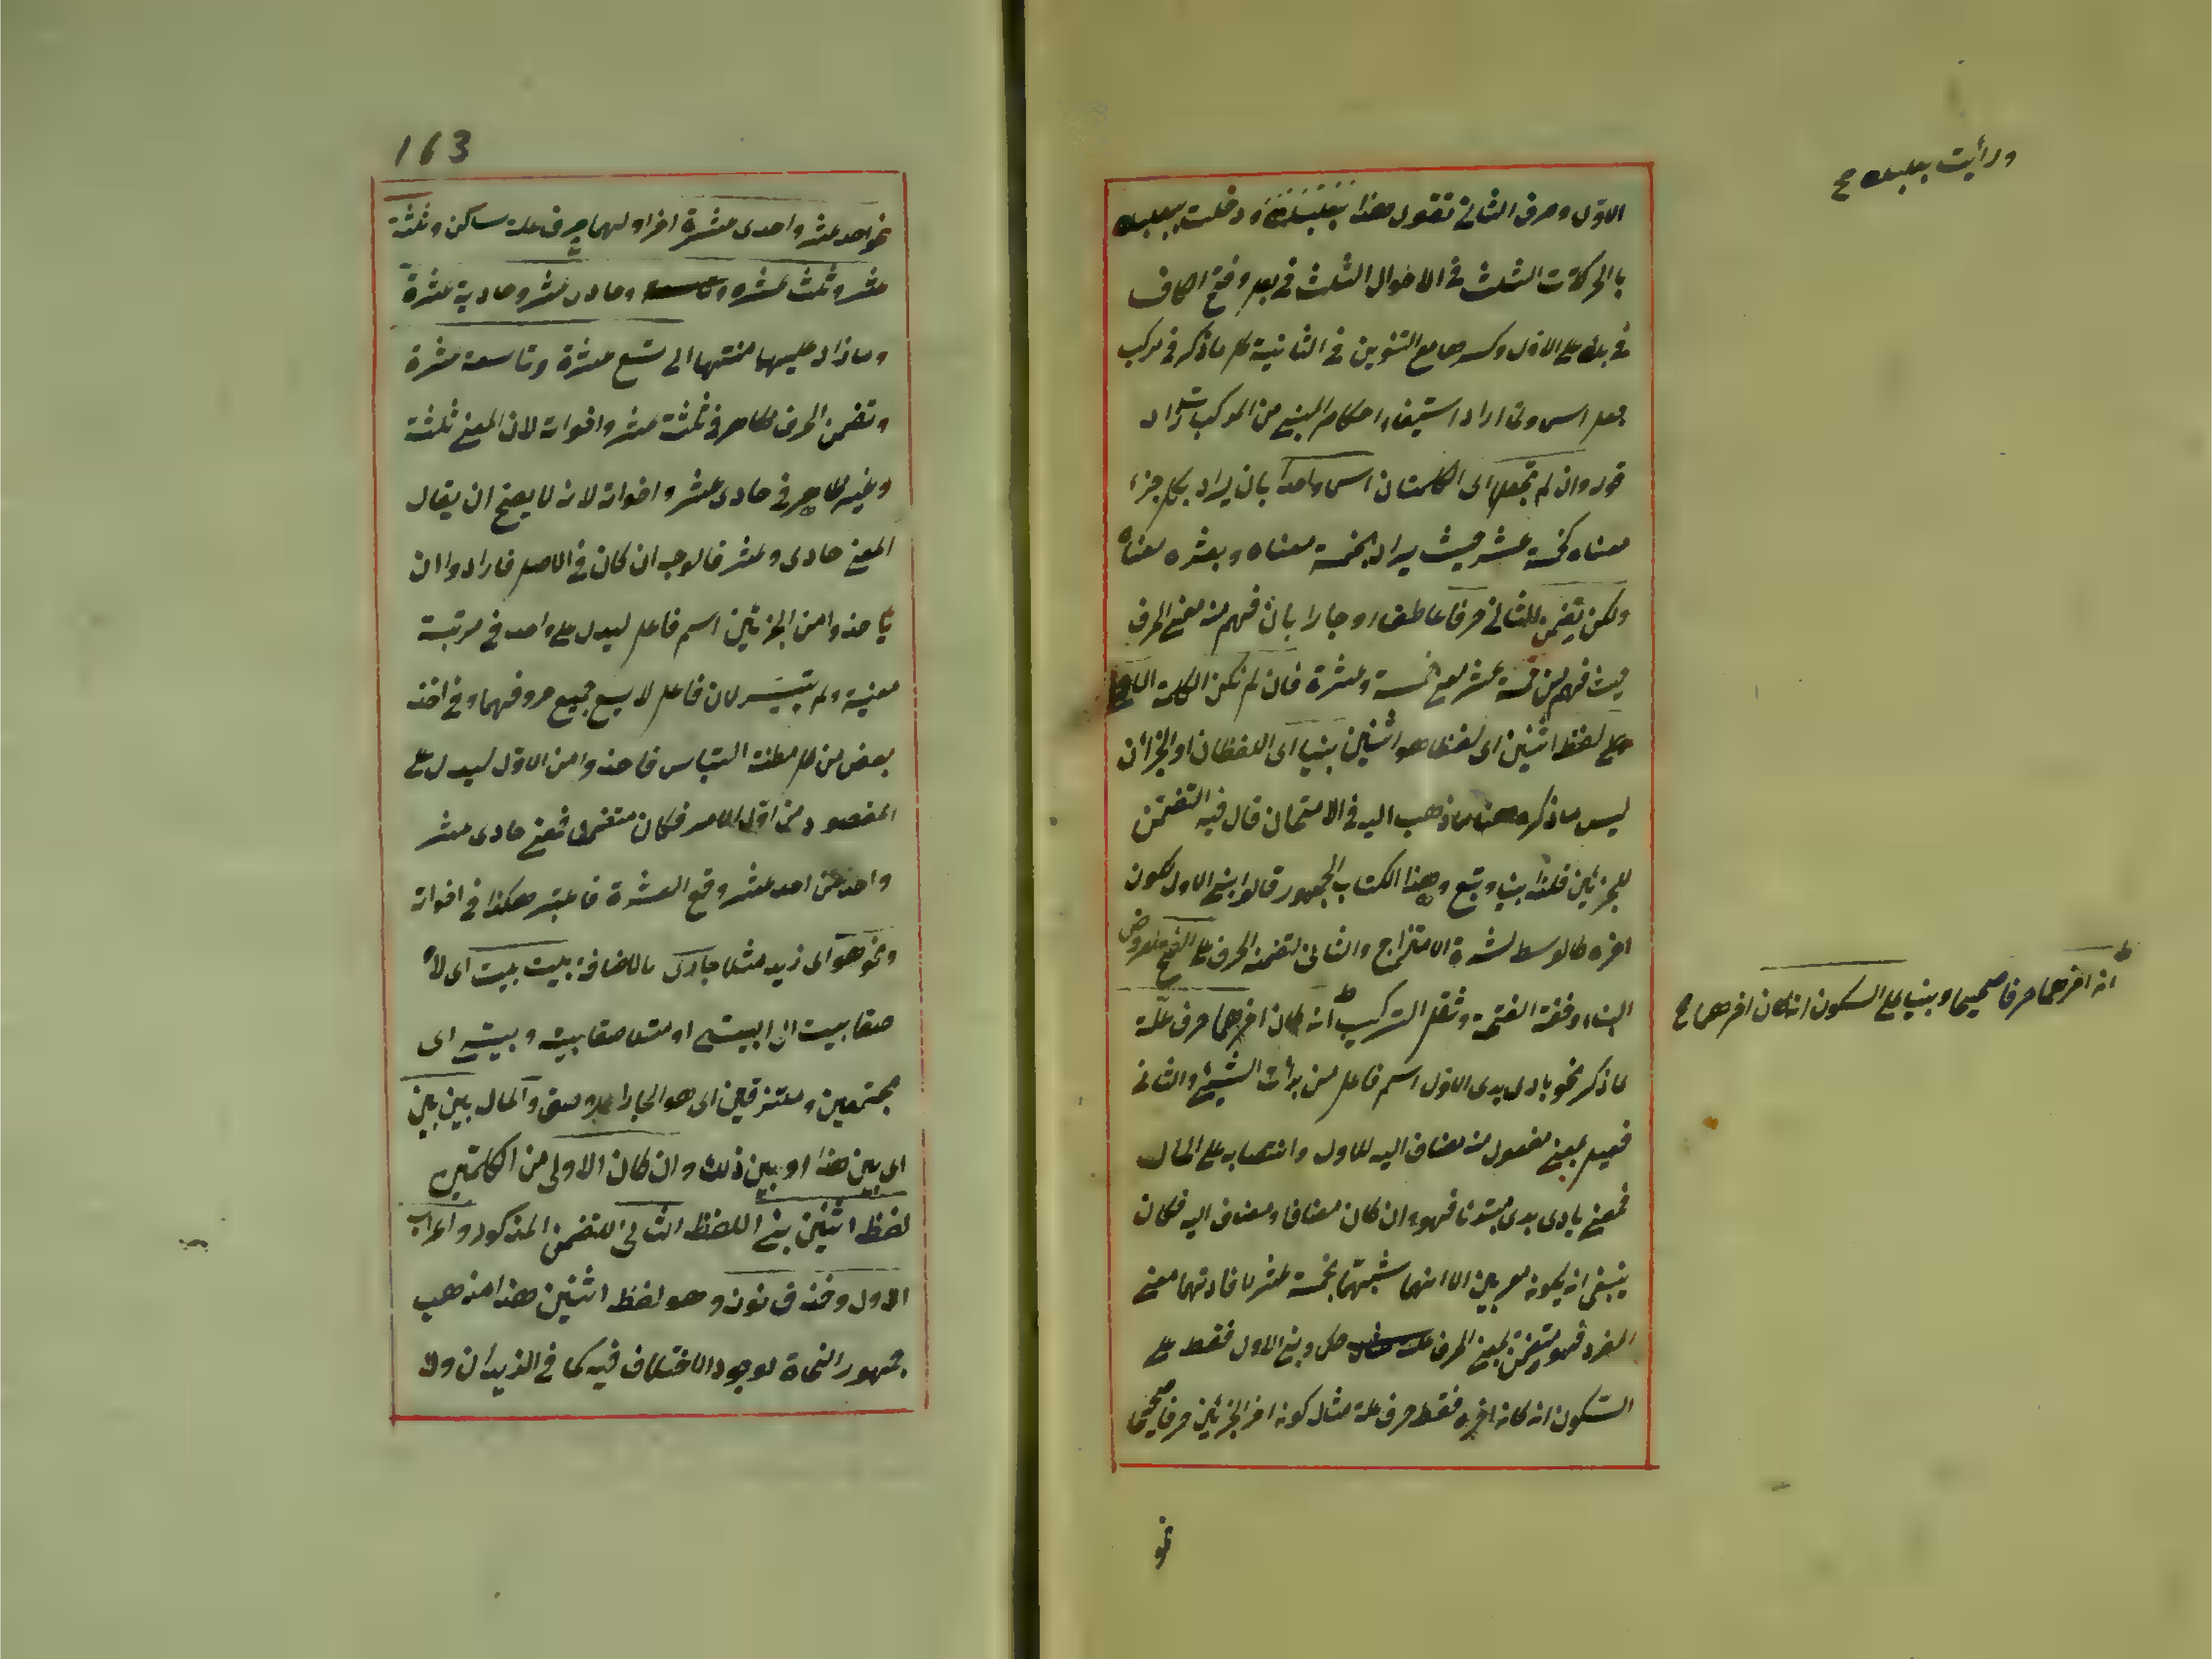 الاول وصرف الثاني تقول هذا بعلبك ودخلت بعلبك
ورأيت بعلبك صح
بالحركات الثلث في الاحوال الثلث في بعل وفتح الكاف
في بك على الاول وكسرها مع التنوين في الثانية كل ما ذكر في مركب
جعل اسما ولما اراد استيفاء احكام المبني من المركب زاد
قوله وان لم تجعل اى الكلمتان اسما واحدا بان يراد بكل جزء
معناه كخمسة عشر حيث يراد بخمسة معناه وبعشره معناه
ولكن تضمن الثاني حرفا عاطفا او جارا بان فهم منه معنى الحرف
حيث فهم من خمسة عشر مع خمسة وعشرة فان لم تكن الكلمة الاولى
لفظ اثنين اى لفظا هو اثنين بنيا اى اللفظان او الجزآن
ليس ما ذكره هنا ما ذهب اليه في الامتحان قال فيه التضمن
للجزئين فلذا بنيا وتبع في هذا الكتاب الجمهور قالوا بني الاول لكون
اخره كالوسط لشدة الامتزاج والثاني لتضمنه الحرف على الفتح لعروض
البناء وخفة الفتحة وثقل التركيب ان كان اخرهما حرف علة
ان اخرهما حرفا صحيحا وبنيا على السكون ان كان اخرهما صح
لما ذكر نحو بادى بدى الاول اسم فاعل من بدأت الشيئ والثاني
فعيل بمعنى مفعول منه مضاف اليه للاول وانتصابه على الحال
فمعنى بادى بدى مبتدئا فهو وان كان مضافا ومضاف اليه فكان
ينبغي ان يكونا معربين الا انهما شبهتا بخمسة عشر لافادتهما معنى
المفرد فهو متضمن لمعنى الحرف حكما وبني الاول فقط على
السكون ان كان اخره فقط حرف علة مثال كون اخر الجزئين حرفا صحيحا
نحو
163
نحو احد عشر واحدى عشرة اخر اولهما حرف علة ساكن وثلثة
عشر وثلث عشره وحادى عشر وحادية عشرة
وما زاد عليهما منتهيا الى تسع عشرة وتاسعة عشرة
وتضمن الحرف ظاهر في ثلثة عشر واخواته لان المعنى ثلثة
وغير ظاهر في حادى عشر واخواته لانه لا يصح ان يقال
المعنى حادى وعشر فالوجه ان كان في الاصل فارادوا ان
ياخذوا من الجزئين اسم فاعل ليدل على واحد في مرتبة
معينة ولم يتيسر لان فاعل لا يسع جميع حروفهما وفي اخذ
بعض من كل مظنة التباس فاخذوا من الاول ليدل على
المقصود من اول الامر فكان متضمنا فمعنى حادى عشر
واحد من احد عشر وقع العشرة فاعتبر هكذا في اخواته
ونحو هو اى زيد مثلا جارى بالاضافة بيت بيت اى
ملاصقا بيت الى البيت او ملاصقا بيته وبيتي اى
مجتمعين وملتزقين اى هو الجار الملاصق والحال بين بين
اى بين هذا او بين ذلك وان كان الاولى من الكلمتين
لفظ اثنين بني اللفظ الثاني للتضمن المذكور واعرب
الاول وحذف نونه وهو لفظ اثنين هذا مذهب
جمهور النحاة لوجود الاختلاف فيه كما في الزيدان ولا